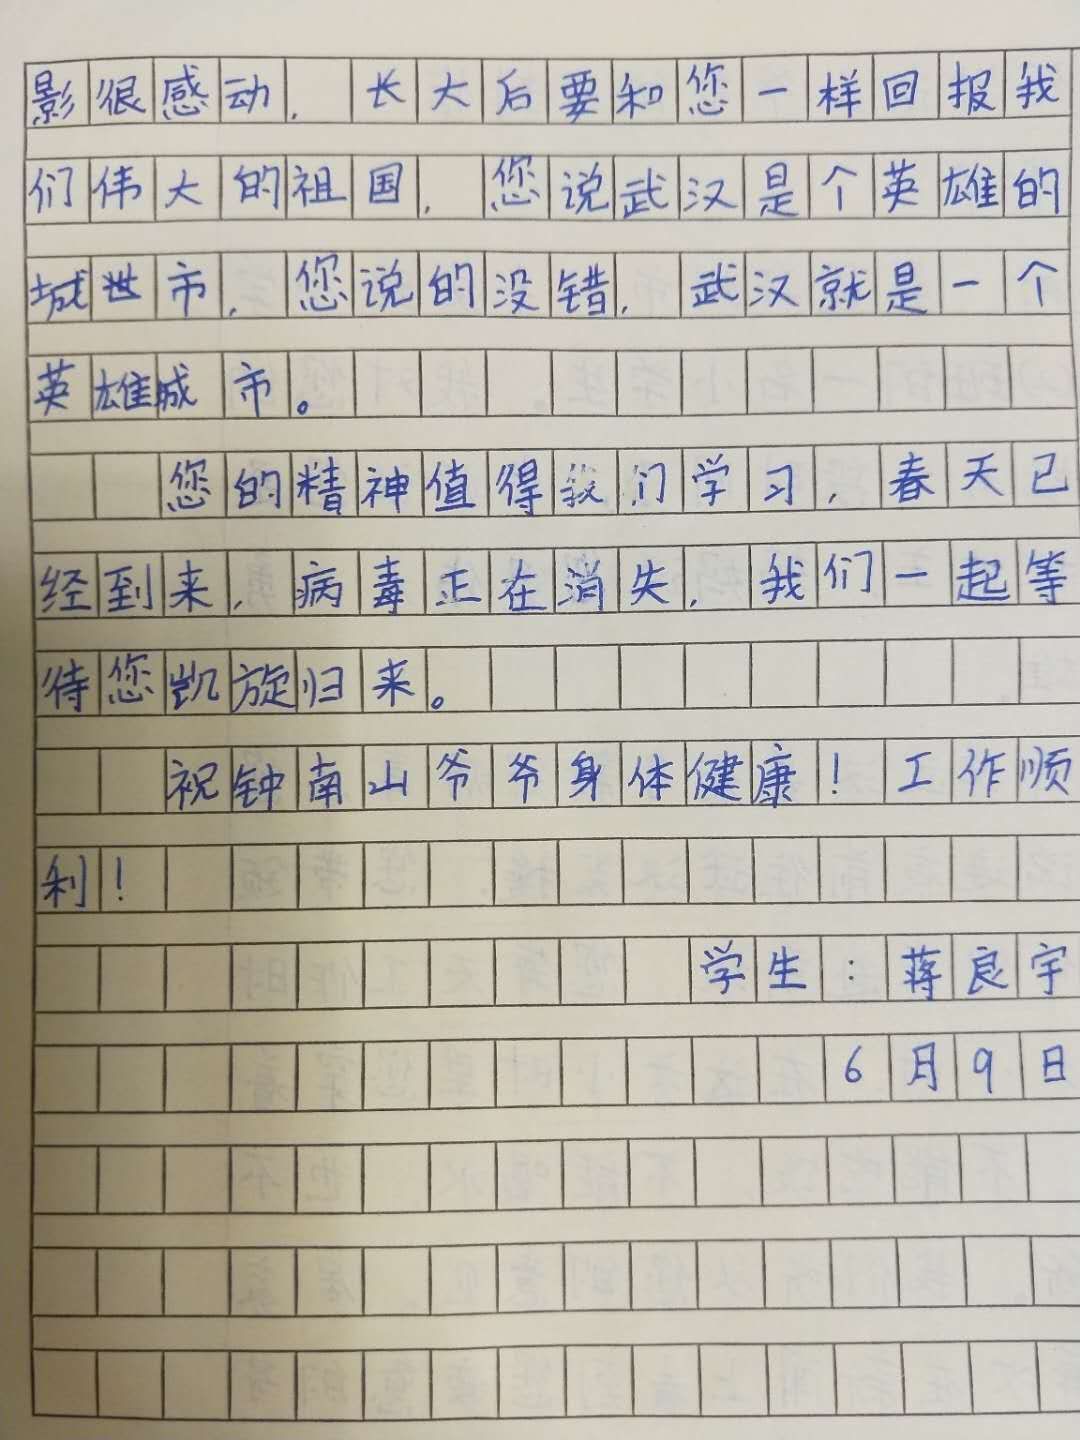 影很感动，长大后要和您一样回报我
们伟大的祖国，您说武汉是个英雄的
城世市，您说的没错，武汉就是一个
英雄城市。
您的精神值得我们学习，春天已
经到来，病毒正在消失，我们一起等
待您凯旋归来。
祝钟南山爷爷身体健康！工作顺
利！
学生：蒋良宇
6月9日